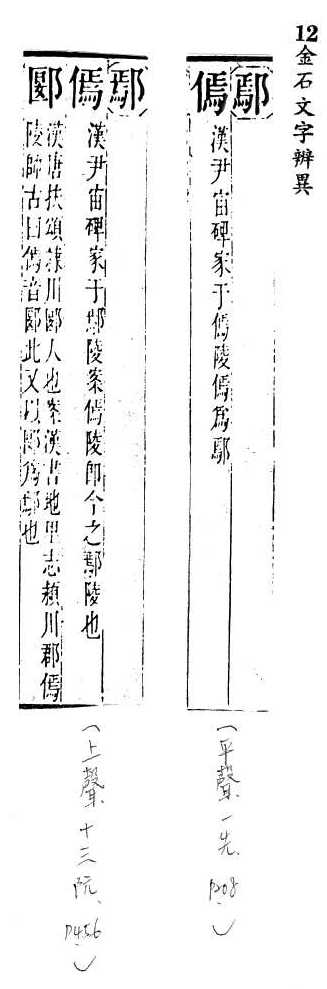 12金石文字辨異
鄢
傿
漢尹宙碑家于傿陵傿爲鄢
鄢
傿
漢尹宙碑家于鄢陵案傿陵即今之鄢陵也
郾
漢唐扶頌潁川郾人也案漢書地理志潁川郡傿
陵師古曰傿音郾此又以郾爲鄢也
(平聲一先、P208)
(上聲、十三阮、P456)